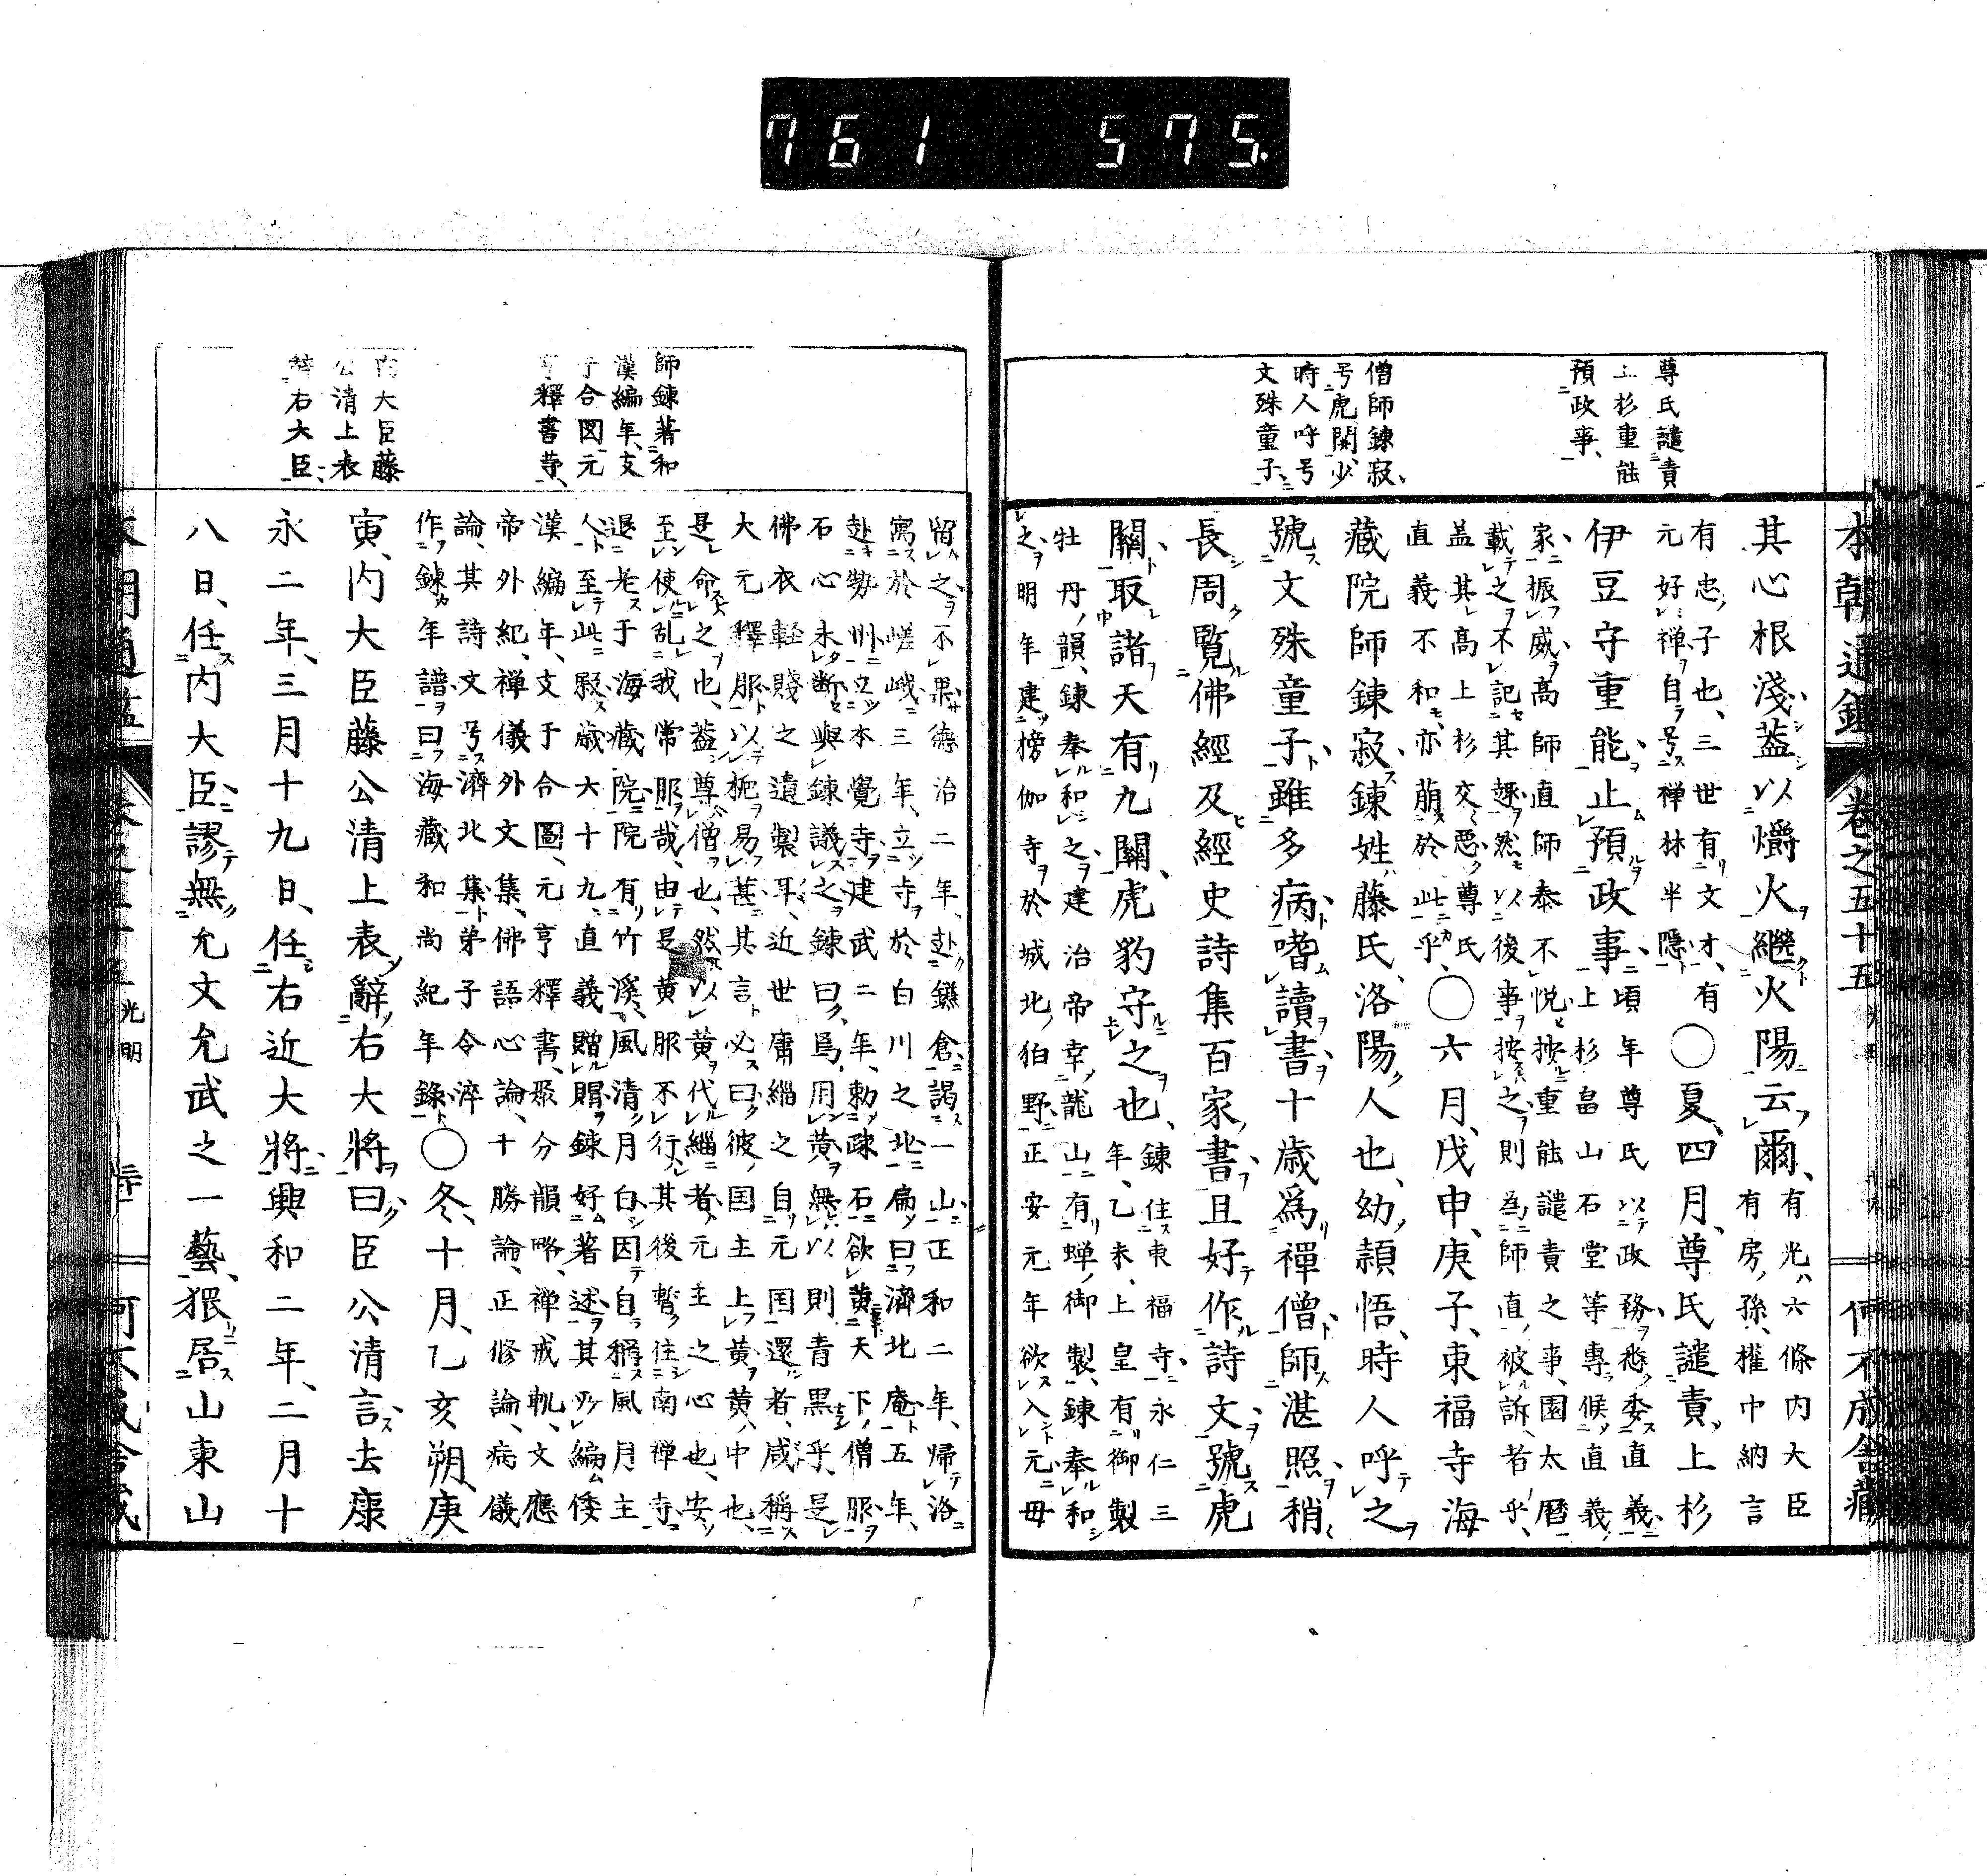 761 575.
本朝通鑑 卷之五十五 何不成舍藏
尊氏譴責
上杉重能
預政事、
僧師鍊寂、
号虎関、少
時人呼号
文殊童子、
其心根淺、葢以爝火繼火陽云爾、有光六條内大臣
有房孫、權中納言
有忠子也、三世有文才、有
元好禅自号禅林半隠
〇夏、四月、尊氏譴責上杉
伊豆守重能、止預政事、頃年尊氏以政務悉委直義、
上杉畠山石堂等專候直義、
家振威、髙師直師泰不悦、按重能譴責之事、園太暦
載之不記其趣、然以後事按之、則為師直被訴者乎、
盖其髙上杉交悪、尊氏
直義不和、亦萠於此乎、
〇六月、戊申、庚子、東福寺海
藏院師鍊寂、鍊姓藤氏、洛陽人也、幼頴悟、時人呼之
號文殊童子、雖多病、嗜讀書、十歳爲禪僧、師湛照、稍
長周覧佛經及經史詩集百家書、且好作詩文、號虎
關、取諸天有九關、虎豹守之也、鍊住東福寺、永仁三
年、乙未、上皇有御製
牡丹韻、鍊奉和之、建治帝幸龍山、有蝉御製、鍊奉和
之、明年建榜伽寺於城北伯野、正安元年欲入元、母
師鍊著和
漢編年、支
于合図、元
亨釋書等、
内大臣藤
公清上表
辞右大臣、
留之、不果、德治二年、赴鎌倉、謁一山、正和二年、帰洛
寓於嵯峨、三年、立寺於白川之北、扁曰濟北庵、五年、
赴勢州、立本覺寺、建武二年、勅疎石、欲黄天下僧服、
石心未断、與鍊議之、鍊曰、爲用黄、無以則青黒乎、是
佛衣軽賤之遺製耳、近世庸緇之自元国還者、咸稱
大元釋服、以扼易甚、其言必曰、彼国主上黄、黄中也、
是命之也、葢尊僧也、然以黄代緇者、元主之心也、安
至使乱我常服哉、由是黄服不行、其後暫住南禅寺、
退老于海藏院、院有竹溪、風清月白、因自稱風月主
人、至此歿、歳六十九、直義贈賵、鍊好著述、其所編倭
漢編年、支于合圖、元亨釋書、聚分韻略、禅戒軌、文應
帝外紀、禅儀外文集、佛語心論、十勝論、正修論、病儀
論、其詩文号濟北集、弟子令淬
作鍊年譜、曰海藏和尚紀年錄、
〇冬、十月、乙亥朔、庚
寅、内大臣藤公清上表、辭右大將、曰、臣公清言、去康
永二年、三月十九日、任右近大將、興和二年、二月十
八日、任内大臣、謬無允文允武之一藝、猥居山東山
光明